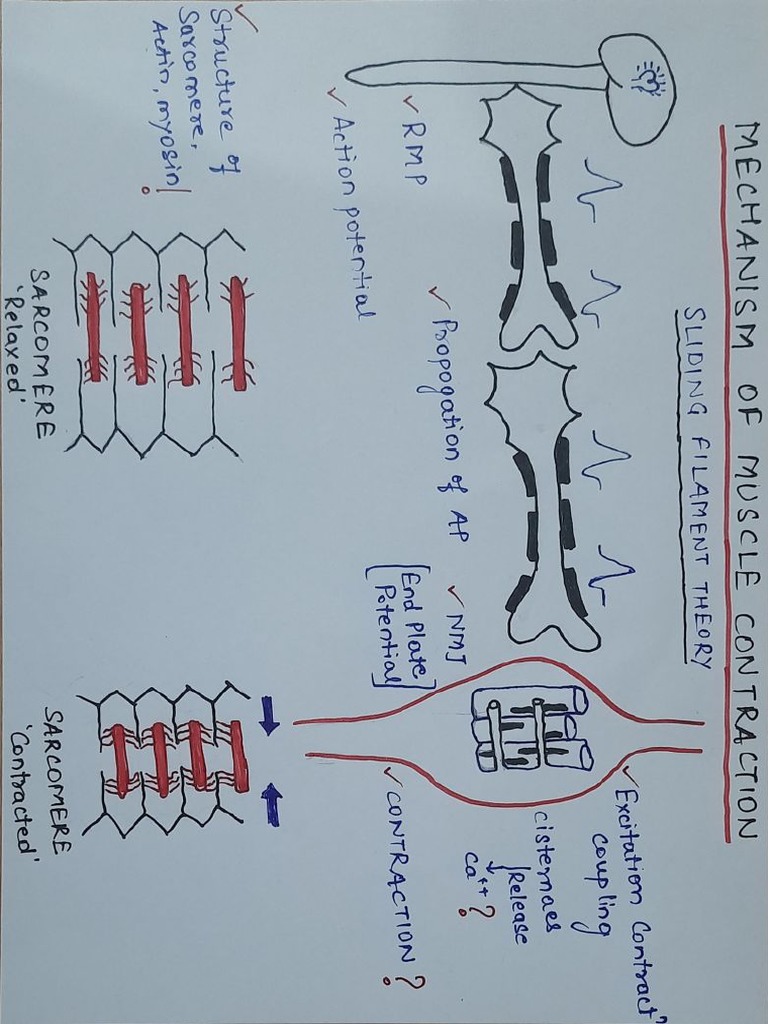 MECHANISM OF MUSCLE CONTRACTION
SLIDING FILAMENT THEORY
✓ RMP
✓ Action potential
✓ Propogation of AP
✓ NMJ
[End Plate
Potential]
✓ Excitation Contractn
coupling
cisternaes
↓ Release
Ca++ ?
✓ CONTRACTION ?
✓ Structure of
Sarcomere,
Actin, myosin!
SARCOMERE
'Relaxed'
SARCOMERE
'Contracted'